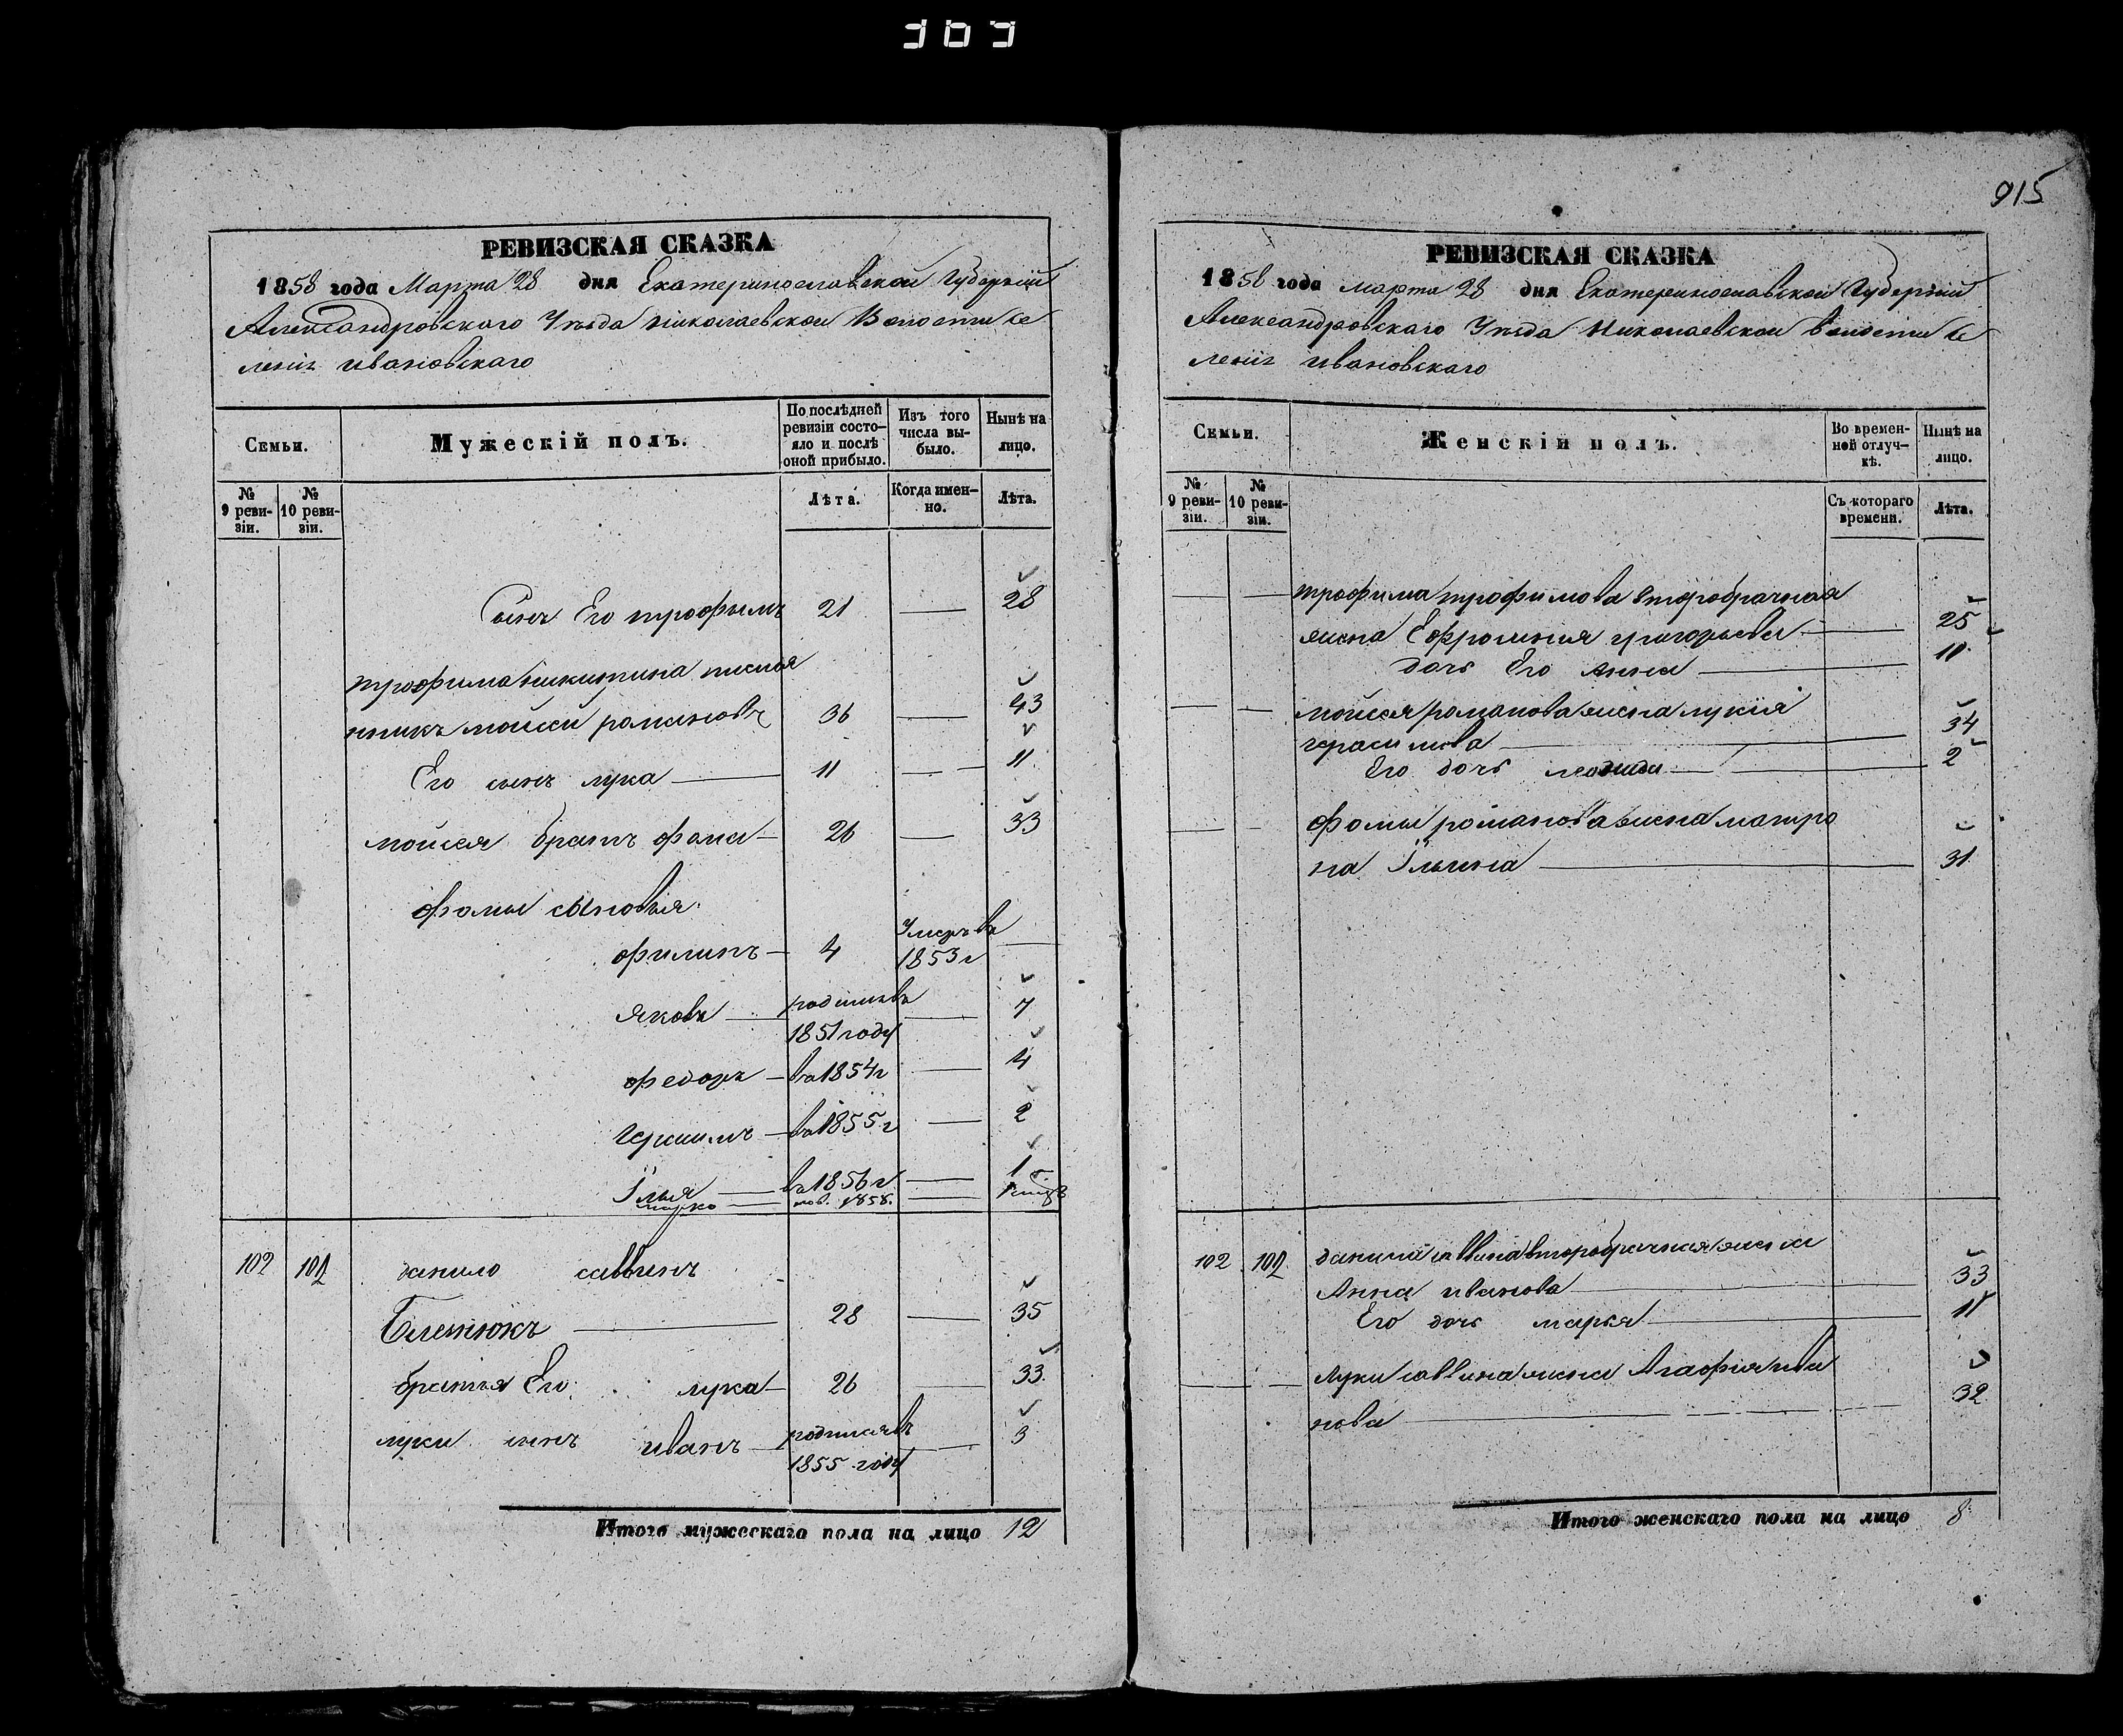 915
РЕВИЗСКАЯ СКАЗКА
1858 года Марта 28 дня Екатеринославской Губерніи
Александровского Уѣзда Николаевской Волости Се
ленія ивановскаго
Семьи.
Мужескій полъ.
По послѣдней ревизіи состо-
яло и послѣ оной прибыло.
Изъ того числа вы-
было.
Нынѣ на лицо.
№ 9 реви-
зіи.
№ 10 реви-
зіи.
Лѣта.
Когда имен-
но.
Лѣта.
Сынъ Его трофымъ 21 — 28
трофима никитина племя
никъ мойсей романовъ 36 — 43
Его сынъ лука — 11 — 11
мойсея братъ фома — 26 — 33
фомы сыновья:
филипъ — 4 Умеръ въ 1853 г —
яковъ — родился въ 1851 году — 7
федоръ — въ 1854 г — 4
герасимъ — въ 1855 г — 2
Илья — въ 1856 г — 1
марко — 1858. —
102 102 данило саввинъ
— 28 — 35
братья Его: лука — 26 — 33
луки сынъ иванъ — родился въ 1855 году — 3
Итого мужескаго пола на лицо 12
РЕВИЗСКАЯ СКАЗКА
1858 года марта 28 дня Екатеринославской Губерніи
Александровскаго Уѣзда Николаевской Волости Се
ленія ивановскаго
Семьи.
Женскій полъ.
Во времен-
ной отлуч-
кѣ.
Нынѣ на лицо.
№ 9 реви-
зіи.
№ 10 реви-
зіи.
Съ котораго времени.
Лѣта.
— — трофима трофимова второбрачная
жена Ефросиния григорьева — 25
дочь Его Анна — 11
— — мойсея романова жена лукия
герасимова — 34
Его дочь — 2
— — фомы романова жена матро
на Ильина — 31
102 102 данила саввина второбрачная жена
Анна иванова — 33
Его дочь марья — 11
— — луки саввина жена Агафия ива
нова — 32
Итого женскаго пола на лицо 8